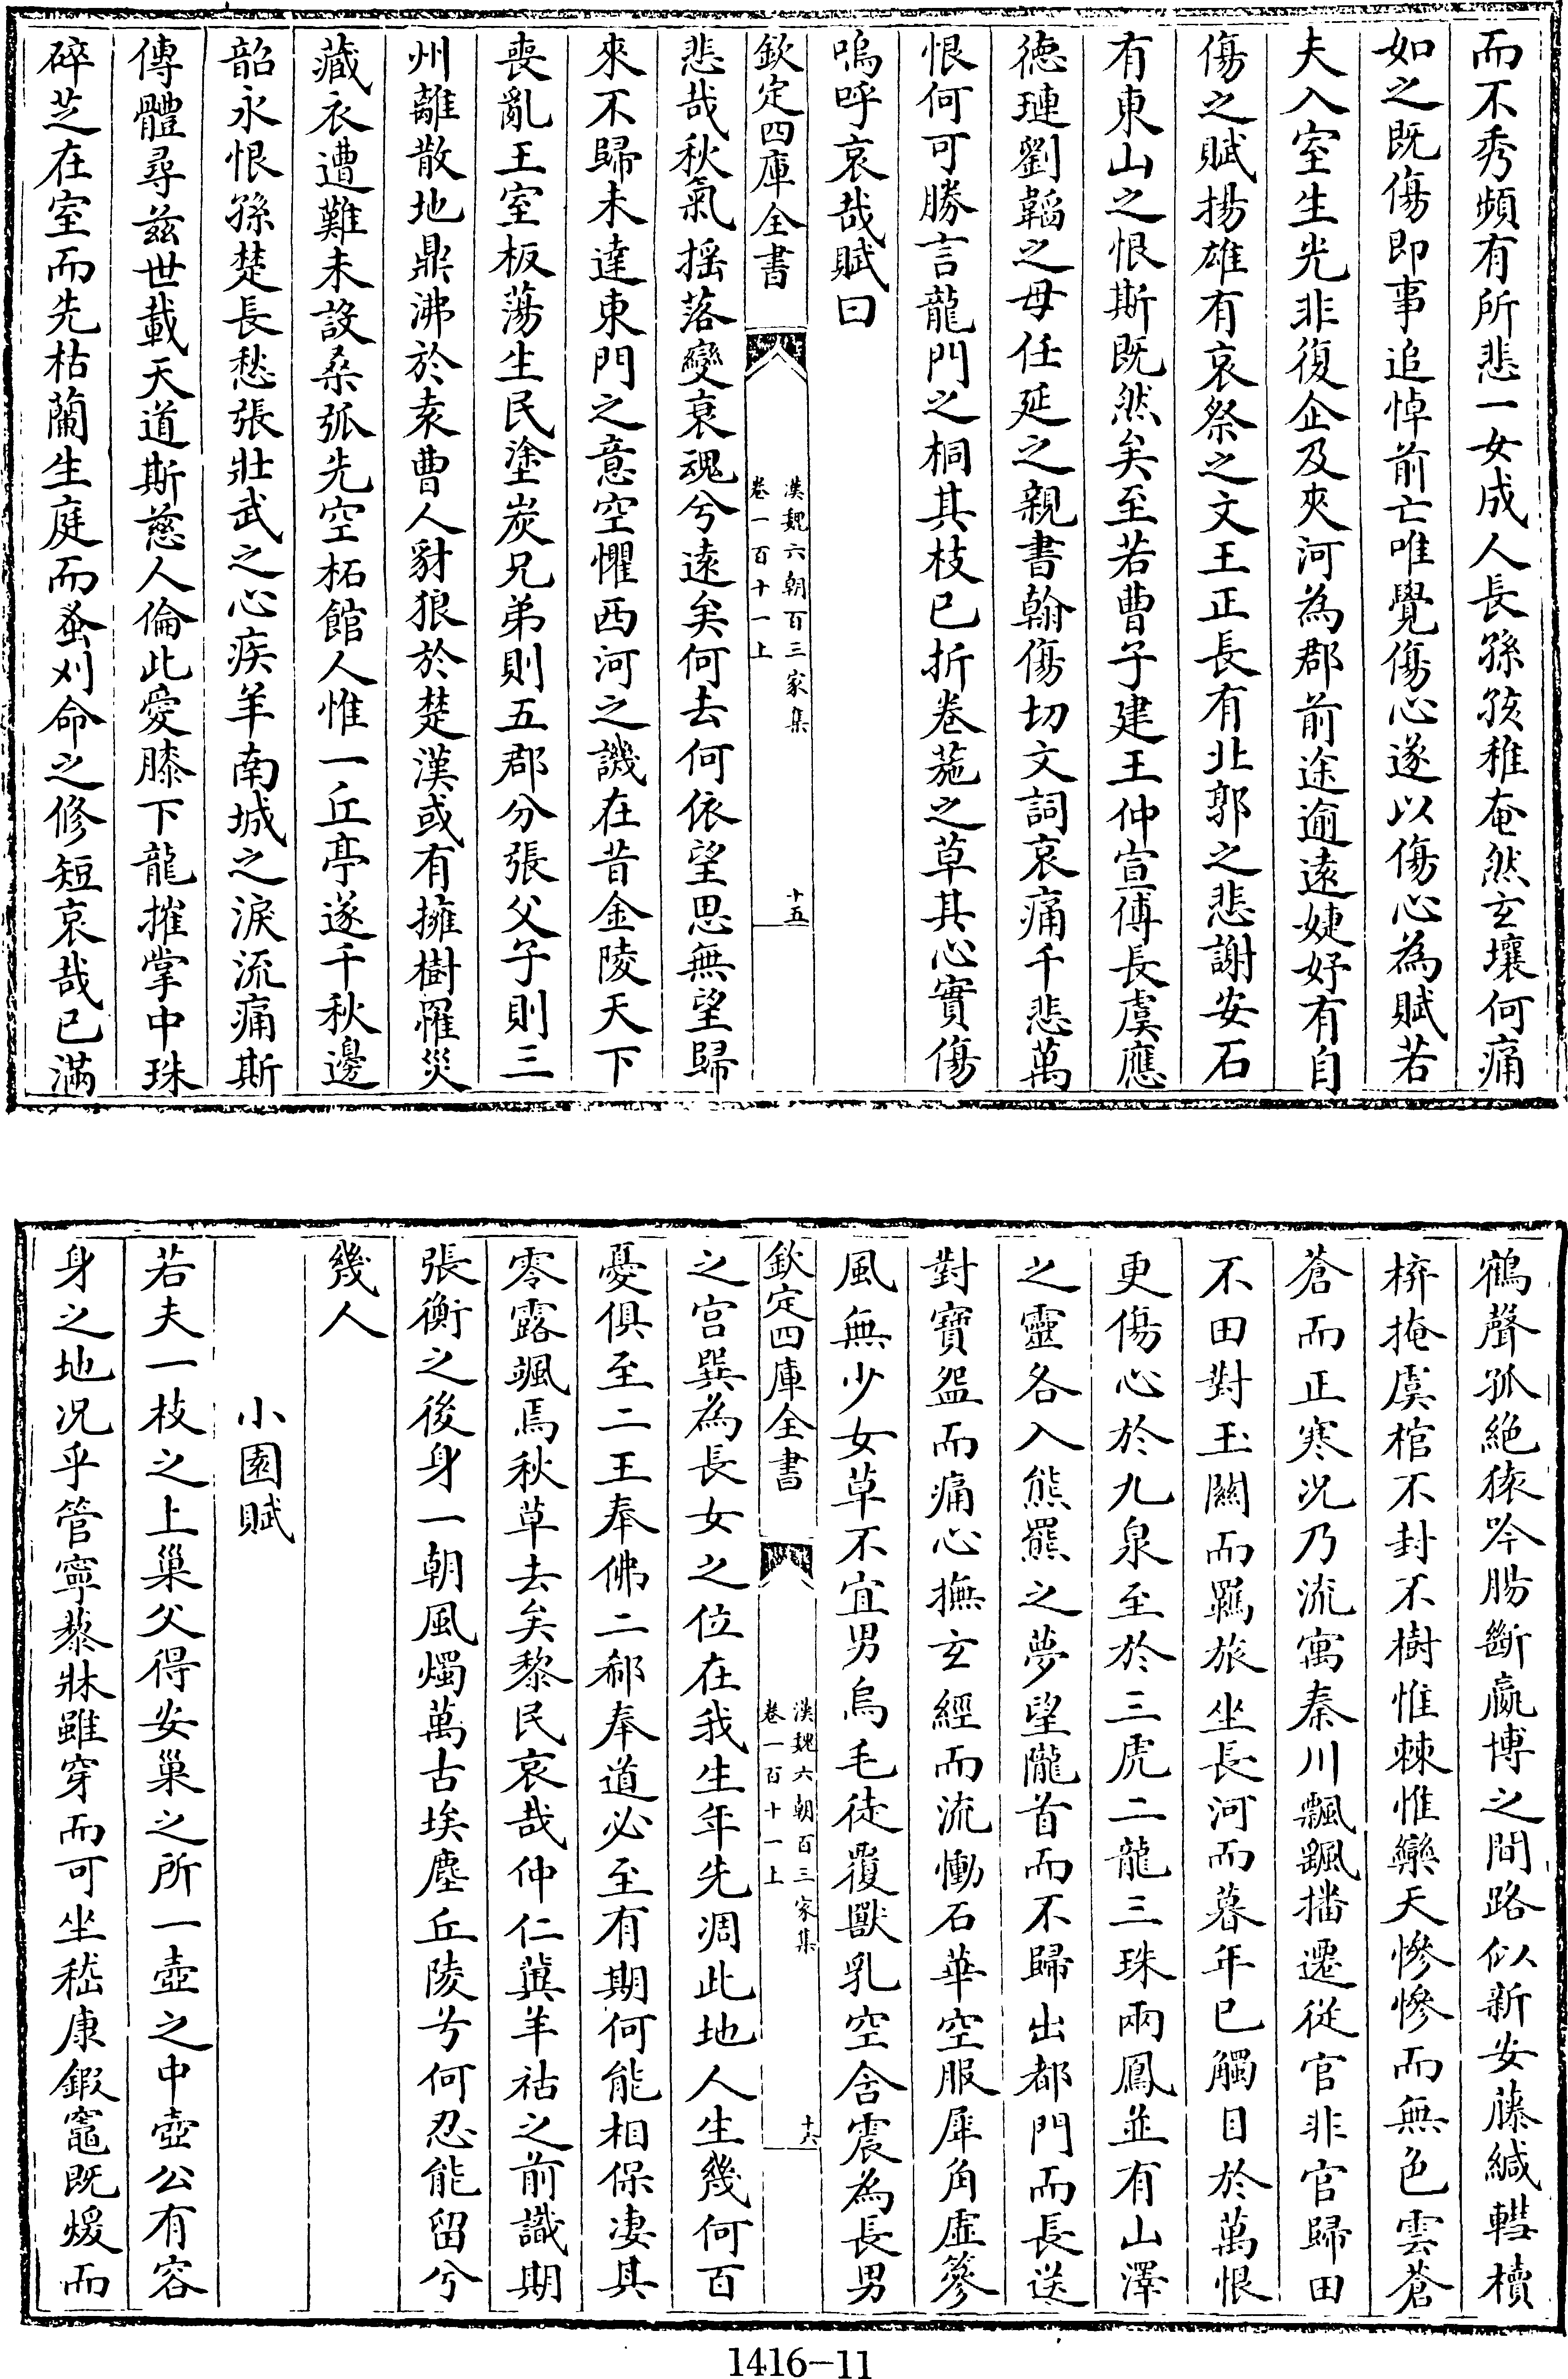 而不秀頻有所悲一女成人長孫孩稚奄然玄壤何痛
如之既傷即事追悼前亡唯覺傷心遂以傷心為賦若
夫入室生光非復企及夾河為郡前途逾遠婕妤有自
傷之賦揚雄有哀祭之文王正長有北郭之悲謝安石
有東山之恨斯既然矣至若曹子建王仲宣傅長虞應
德璉劉韜之母任延之親書翰傷切文詞哀痛千悲萬
恨何可勝言龍門之桐其枝已折卷葹之草其心實傷
嗚呼哀哉賦曰
欽定四庫全書
漢魏六朝百三家集
卷一百十一上
十五
悲哉秋氣揺落變衰魂兮遠矣何去何依望思無望歸
來不歸未達東門之意空懼西河之譏在昔金陵天下
喪亂王室板蕩生民塗炭兄弟則五郡分張父子則三
州離散地鼎沸於袁曹人豺狼於楚漢或有擁樹罹災
藏衣遭難未設桑弧先空柘館人惟一丘亭遂千秋邊
韶永恨孫楚長愁張壯武之心疾羊南城之淚流痛斯
傳體尋兹世載天道斯慈人倫此愛膝下龍摧掌中珠
碎芝在室而先枯蘭生庭而蚤刈命之修短哀哉已滿
鶴聲孤絶猿吟腸斷嬴博之間路似新安藤緘轊櫝
枅掩虞棺不封不樹惟棘惟欒天慘慘而無色雲蒼
蒼而正寒况乃流寓秦川飄飄播遷從官非官歸田
不田對玉關而羈旅坐長河而暮年已觸目於萬恨
更傷心於九泉至於三虎二龍三珠兩鳳並有山澤
之靈各入熊羆之夢望隴首而不歸出都門而長送
對寶盌而痛心撫玄經而流慟石華空服犀角虛篸
風無少女草不宜男烏毛徒覆獸乳空含震為長男
欽定四庫全書
漢魏六朝百三家集
卷一百十一上
十六
之宫巽為長女之位在我生年先凋此地人生幾何百
憂俱至二王奉佛二郗奉道必至有期何能相保凄其
零露颯焉秋草去矣黎民哀哉仲仁冀羊祜之前識期
張衡之後身一朝風燭萬古埃塵丘陵兮何忍能留兮
幾人
小園賦
若夫一枝之上巢父得安巢之所一壺之中壺公有容
身之地况乎管寧藜牀雖穿而可坐嵇康鍜竈既煖而
1416-11